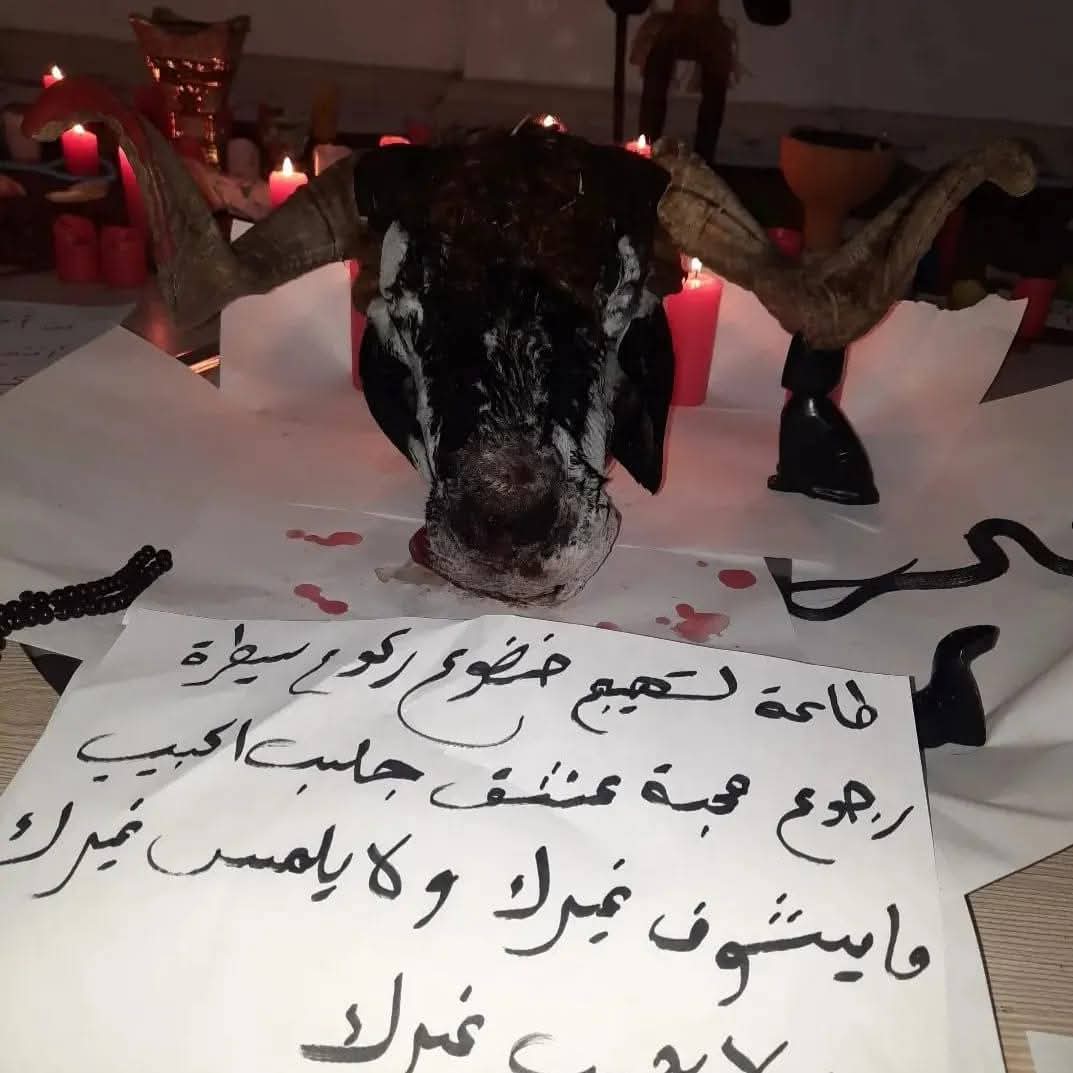 طاعة تهييج خضوع ركوع سيطرة
رجوع محبة عشق جلب الحبيب
مايشوف غيرك ولا يلمس غيرك
غيرك